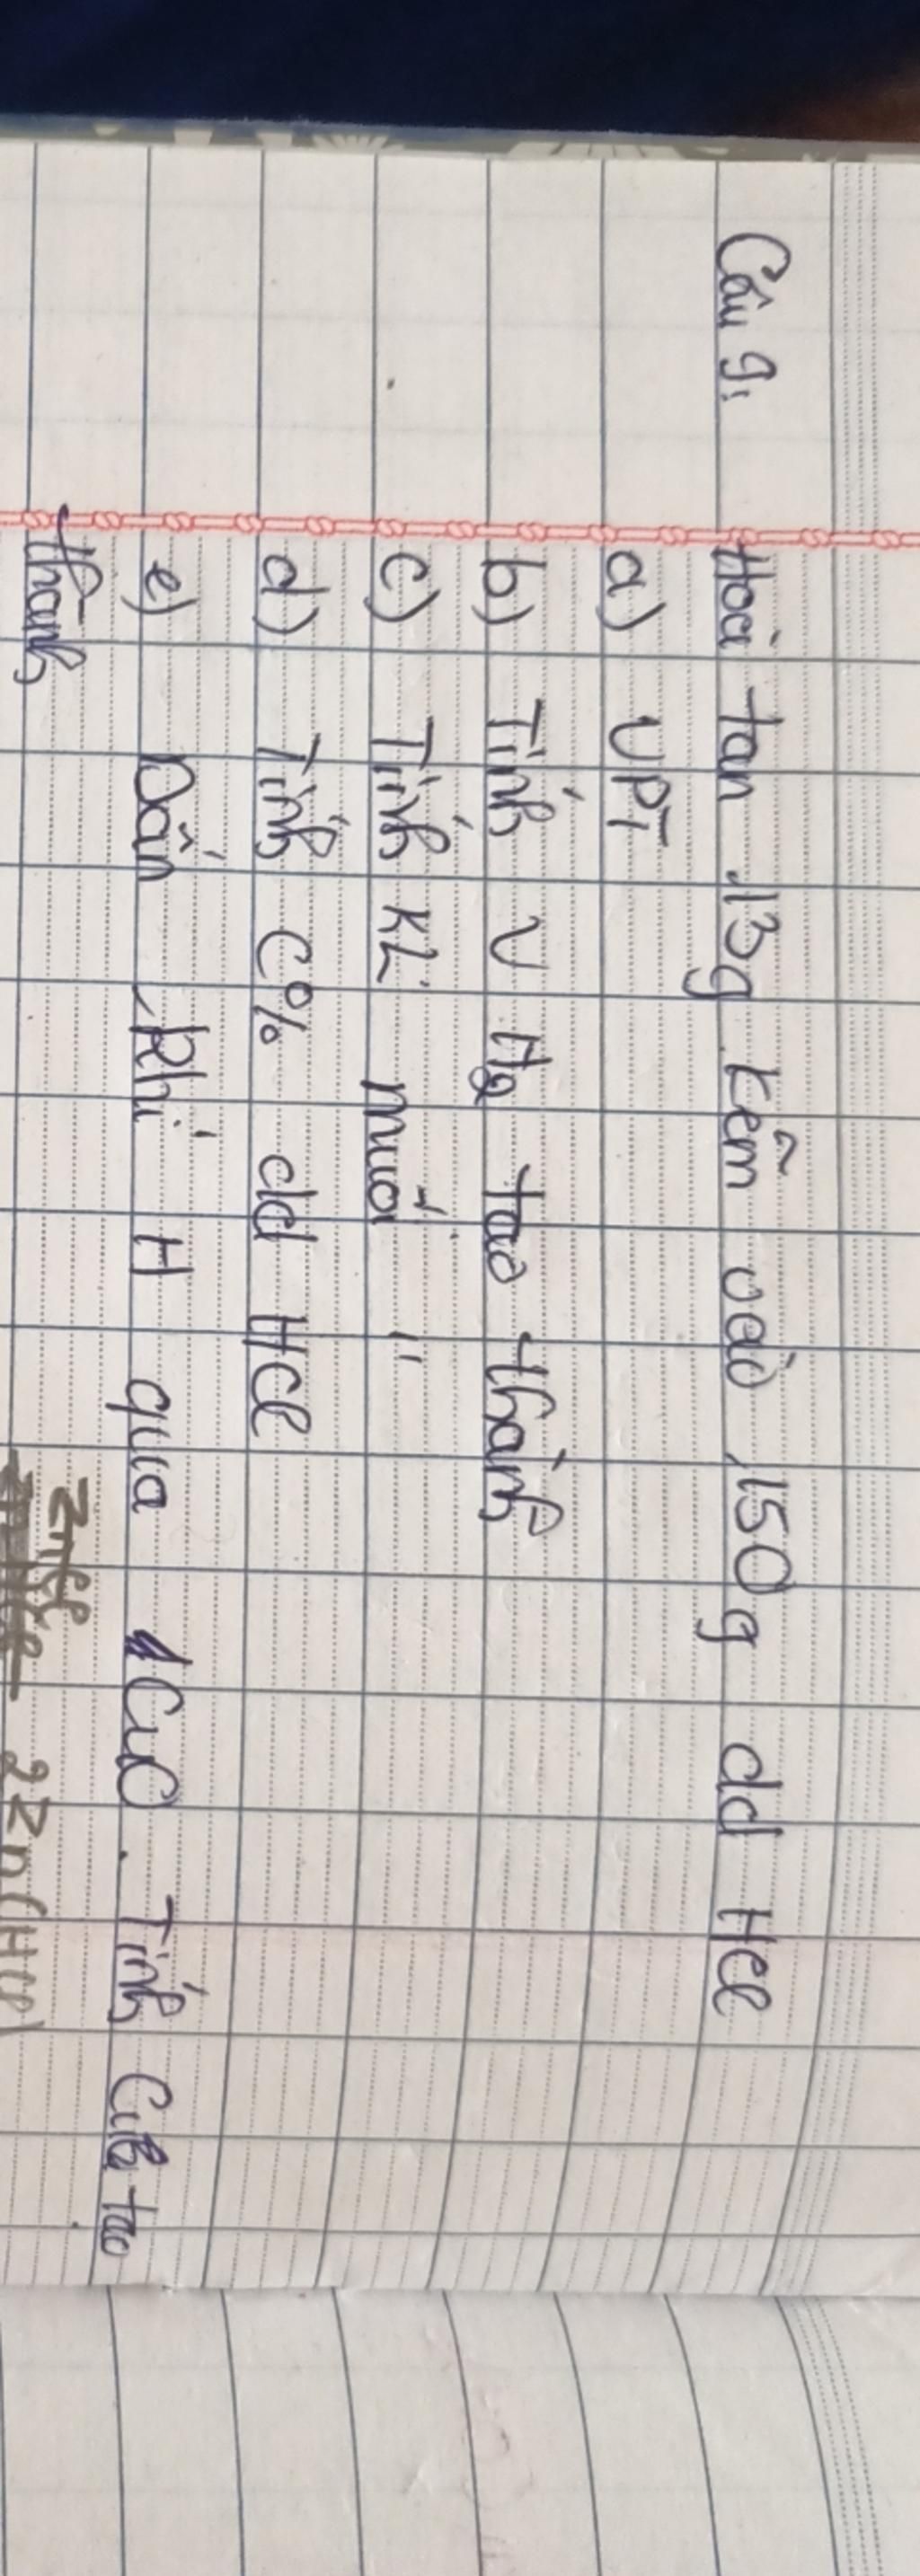 Câu 9,
Hoà tan 13g kẽm vào 150g dd HCl
a) VPT
b) Tính V H2 tạo thành
c) Tính KL muối "
d) Tính C% dd HCl
e) Dẫn khí H qua CuO. Tính Cu tạo
thành
2Zn(HCl)